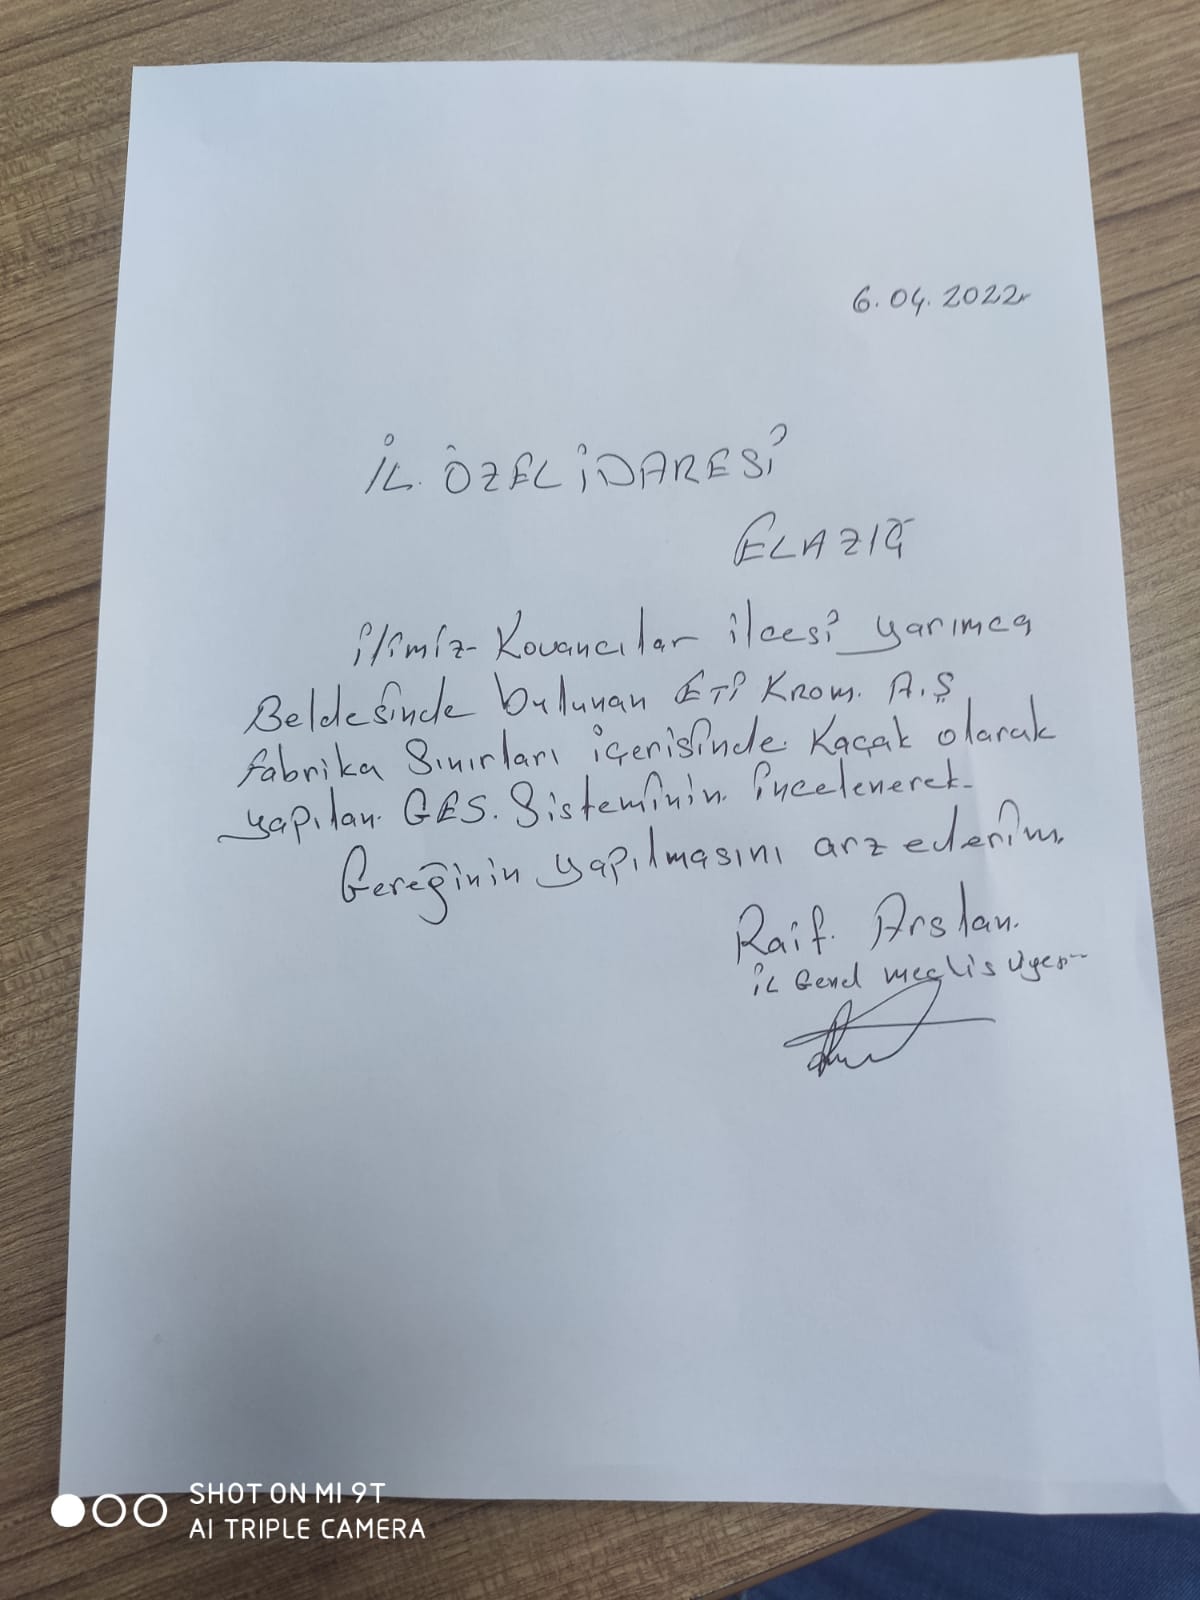 6.04.2022
İL. ÖZEL İDARESİ
ELAZIĞ
İlimiz Kovancılar ilcesi yarımca
Beldesinde bulunan ETİ KROM. A.Ş
fabrika Sınırları içerisinde Kaçak olarak
yapılan GES. Sisteminin incelenerek
Gereğinin yapılmasını arz ederim.
Raif. Arslan.
İL Genel meclis üyesi
SHOT ON MI 9T
AI TRIPLE CAMERA